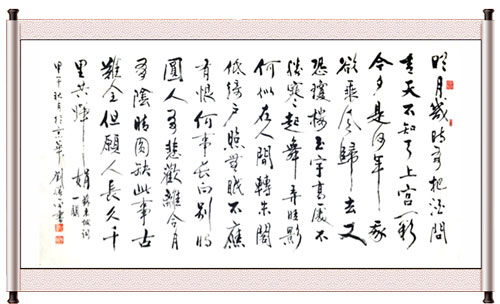 明月幾時有把酒問
青天不知天上宫闕
今夕是何年我
欲乘風歸去又
恐瓊樓玉宇高處不
勝寒起舞弄清影
何似在人間轉朱閣
低綺户照無眠不應
有恨何事長向别時
圓人有悲歡離合月
有陰晴圓缺此事古
難全但願人長久千
里共嬋娟
蘇東坡詞
一首
甲午秋月於京華劉書